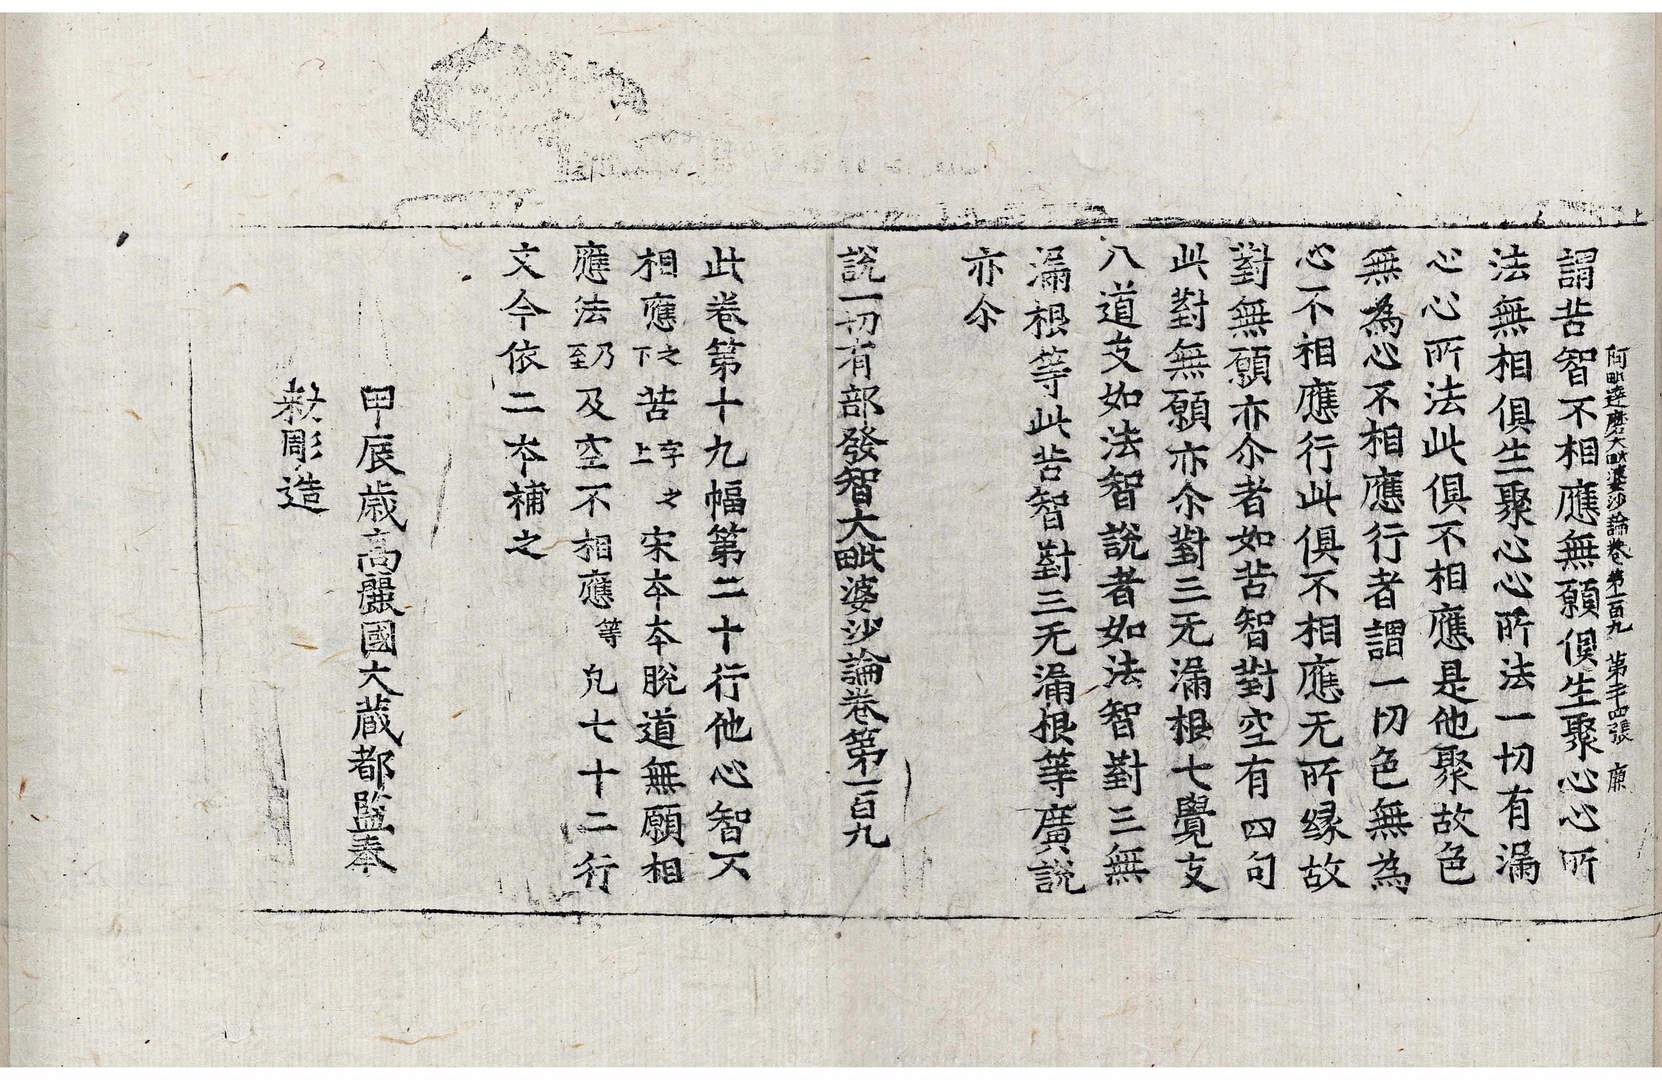 阿毗達磨大毗婆沙論卷第一百九 第二十四張 廉
謂苦智不相應無願俱生聚心心所
法無相俱生聚心心所法一切有漏
心心所法此俱不相應是他聚故色
無為心不相應行者謂一切色無為
心不相應行此俱不相應无所縁故
對無願亦尒者如苦智對空有四句
此對無願亦尒對三无漏根七覺支
八道支如法智說者如法智對三無
漏根等此苦智對三无漏根等廣說
亦尒
說一切有部發智大毗婆沙論卷第一百九
此卷第十九幅第二十行他心智不
相應之下苦字之上宋夲夲脫道無願相
應法乃至及空不相應等凡七十二行
文今依二夲補之
甲辰歳高麗國大蔵都監奉
勑彫造